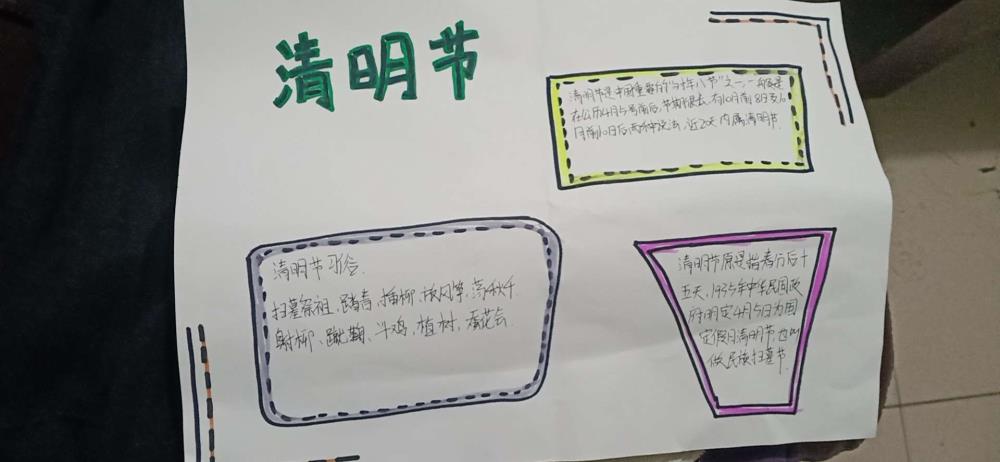 清明节
清明节是中国重要的"时年八节"之一,一般是
在公历4月5号前后,节期很长,有10日前8日及10
日前10日后两种说法,近20天内属清明节.
清明节习俗.
扫墓祭祖、踏青、插柳、放风筝、荡秋千
射柳、蹴鞠、斗鸡、植树、蚕花会
清明节原是指春分后十
五天,1935年中华民国政
府明定4月5日为国
定假日清明节,也叫
做民族扫墓节.